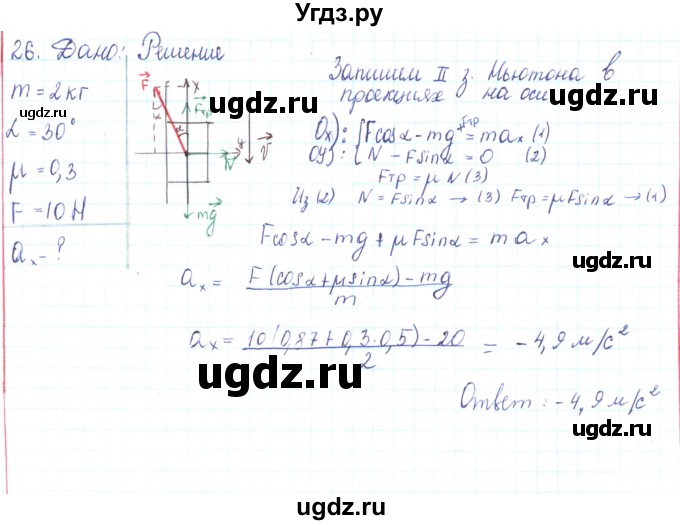 Угдз.ру
26. Дано: Решение
m = 2 кг
α = 30°
μ = 0,3
F = 10 Н
aₓ - ?
F F X
Fтр
α α
N y V
mg
ugdz.ru
Запишем II з. Ньютона в
проекциях на оси
ugdz.ru
Ox): { Fcosα - mg + Fтр = maₓ (1)
Oy): { N - Fsinα = 0 (2)
Fтр = μN (3)
Из (2) N = Fsinα → (3) Fтр = μFsinα → (1)
Fcosα - mg + μFsinα = maₓ
ugdz.ru
aₓ = F(cosα + μsinα) - mg
m
aₓ = 10(0,87 + 0,3·0,5) - 20 = -4,9 м/с²
2
ugdz.ru
Ответ: -4,9 м/с²
ugdz.ru
ugdz.ru